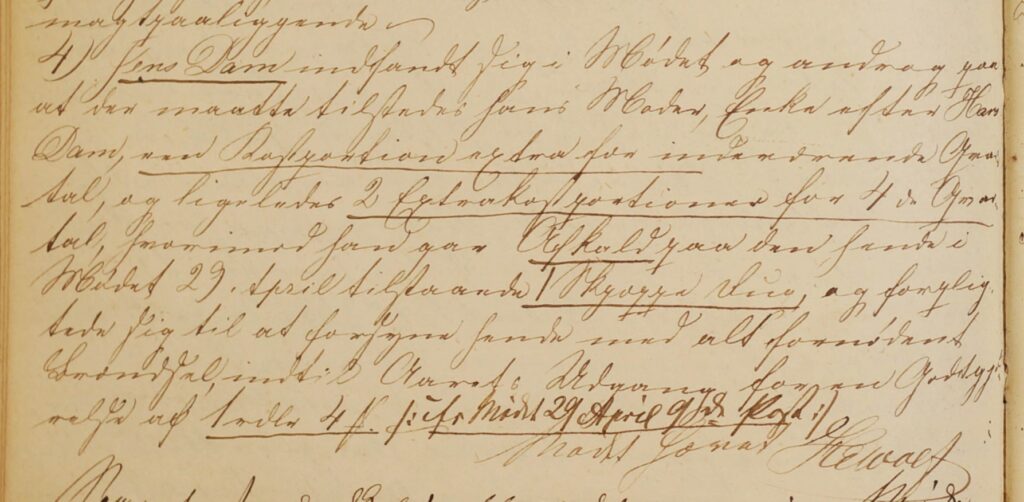 magtpaaliggende.
4) Jens Dam indfandt sig i Mødet og androg paa
at der maatte tilstedes hans Moder, Enke efter Hans
Dam, een Kostportion extra for indeværende Qvar-
tal, og ligeledes 2 Extrakostportioner for 4de Qvar-
tal, hvorimod han gav Afkald paa den hende i
Mødet 29. April tilstaaede 1 Skjeppe Rug, og forplig-
tede sig til at forsyne hende med alt fornødent
Brændsel, indtil Aarets Udgang for en Godtgjø-
relse af 1 rdlr 4 ſ. /: cfr Mødet 29 April 9de Post :/
Mødet hævet